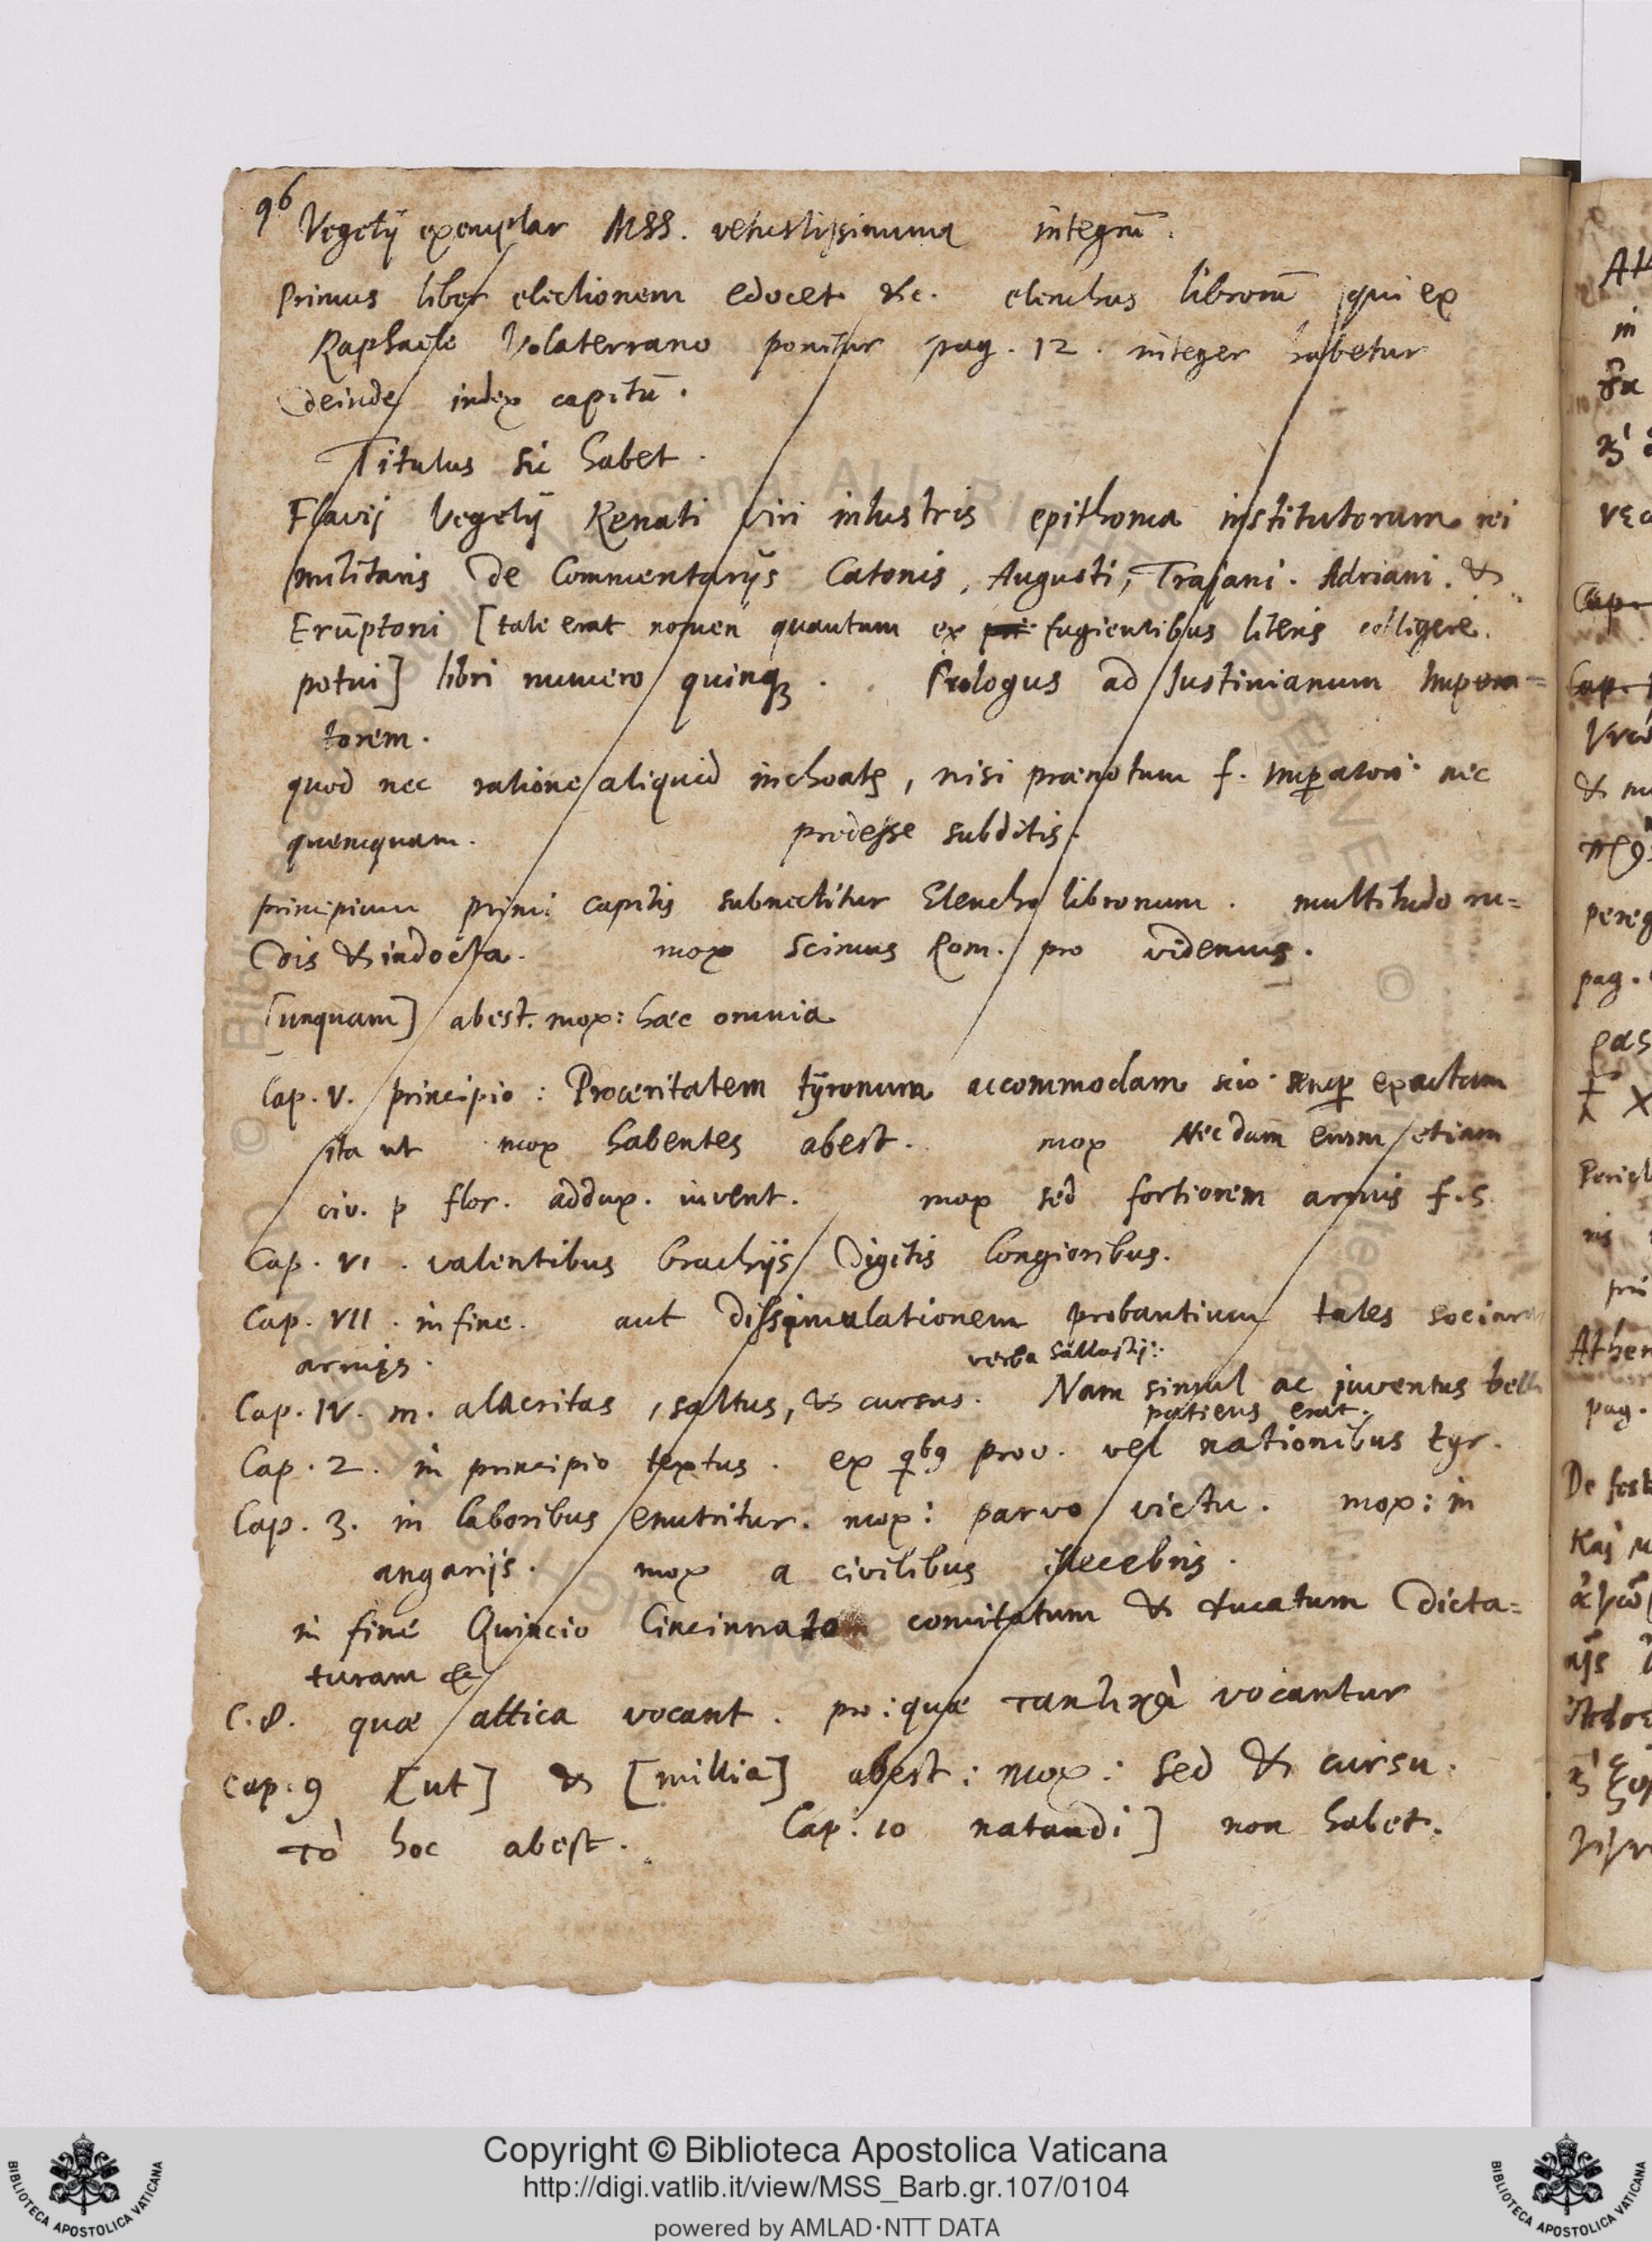 96
Vegetij exemplar MSS. vetustissimum integrū.
Primus liber electionem edocet &c. elenchus librorū qui ex
Raphaele Volaterrano ponitur pag. 12. integer habetur
deinde index capitū.
Titulus sic habet.
Flavij Vegetij Renati viri inlustris epithoma institutorum rei
militaris de Commentarijs Catonis, Augusti, Trajani. Adriani. &
Erūptoni [tale erat nomen quantum ex fugientibus literis colligere
potui] libri numero quinq3. Prologus ad Justinianum Impera=
torem.
quod nec ratione aliquid inchoat, nisi prænotum f. Imperatori nec
quemquam. prodesse subditis.
principium primi capitis subnectitur Elencho librorum. multitudo ru=
dis & indocta. mox scimus Rom. pro videmus.
[unquam] abest. mox: hæc omnia
Cap. V. principio: Proceritatem tyronum accommodam scio semp exactam
ita ut mox habentes abest. mox Necdum enim etiam
civ. p flor. addux. iuvent. mox sed fortiorem armis f. s.
Cap. VI. valentibus brachijs digitis longioribus.
Cap. VII. in fine. aut dissimulationem probantium tales
armis.
verba Sallustij:
Cap. IV. m. alacritas, saltus, & cursus. Nam simul ac juventus belli
patiens erat.
Cap. 2. in principio textus. ex qb9 prov. vel nationibus tyr.
Cap. 3. in laboribus enutritur. mox: parvo victu. mox: in
angarijs. mox a civilibus illecebris.
in fine Quincio Cincinnato comitatum & ducatum dicta=
turam &c
C. 8. quæ attica vocant. pro: quæ τακτικὰ vocantur
Cap. 9 [ut] & [millia] abest: mox: sed & cursu.
τὸ hoc abest. Cap: 10 natandi] non habet.
Copyright © Biblioteca Apostolica Vaticana
http://digi.vatlib.it/view/MSS_Barb.gr.107/0104
powered by AMLAD·NTT DATA
BIBLIOTECA APOSTOLICA VATICANA
BIBLIOTECA APOSTOLICA VATICANA